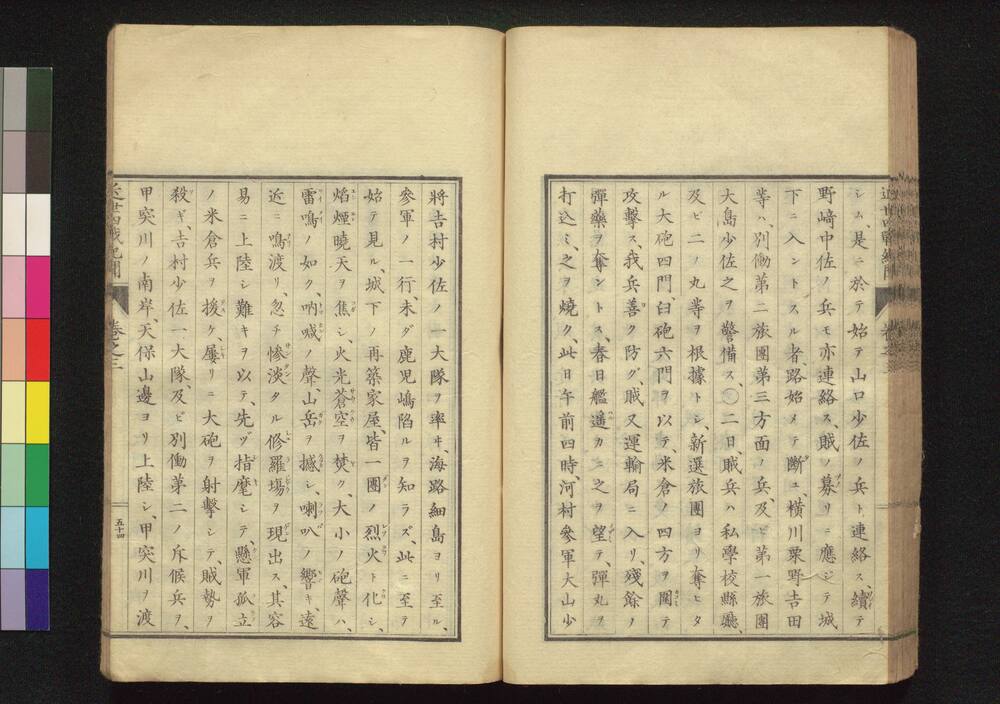 シム、是ニ於テ始テ山口少佐ノ兵ト、連絡ス、續テ
野﨑中佐ノ兵モ亦連絡ス、賊ノ募リニ應シテ城
下ニ入ントスル者路始メテ斷ユ、横川粟野吉田
等ハ、別働第二旅團第三方面ノ兵、及ビ第一旅團
大島少佐之ヲ警備ス、〇二日、賊兵ハ私學校縣廳、
及ビ二ノ丸等ヲ根據トシ、新選旅團ヨリ奪ヒタ
ル大砲四門、臼砲六門ヲ以テ、米倉ノ四方ヲ圍テ
攻擊ス、我兵善ク防グ、賊又運輸局ニ入リ、殘餘ノ
彈藥ヲ奪ントス、春日艦遥カニ之ヲ望テ、彈丸ヲ
打込ミ、之ヲ燒ク、此日午前四時、河村參軍大山少
將吉村少佐ノ一大隊ヲ率ヰ、海路細島ヨリ至ル、
參軍ノ一行、未ダ鹿児嶋陷ルヲ知ラズ、此ニ至テ
始テ見ル、城下ノ再築家屋、皆一團ノ烈火ト化シ、
焰煙曉天ヲ焦シ、火光蒼空ヲ焚ク、大小ノ砲聲ハ、
雷鳴ノ如ク、吶喊ノ聲、山岳ヲ撼シ、喇叭ノ響キ、遠
近ニ鳴渡リ、忽チ慘淡タル修羅塲ヲ現出ス、其容
易ニ上陸シ難キヲ以テ、先ヅ指麾シテ、懸軍孤立
ノ米倉兵ヲ援ケ、屢リニ大砲ヲ射擊シテ、賊勢ヲ
殺ギ、吉村少佐一大隊、及ビ別働第二ノ斥候兵ヲ、
甲突川ノ南岸、天保山邊ヨリ上陸シ、甲突川ヲ渡
卷之三
五十四